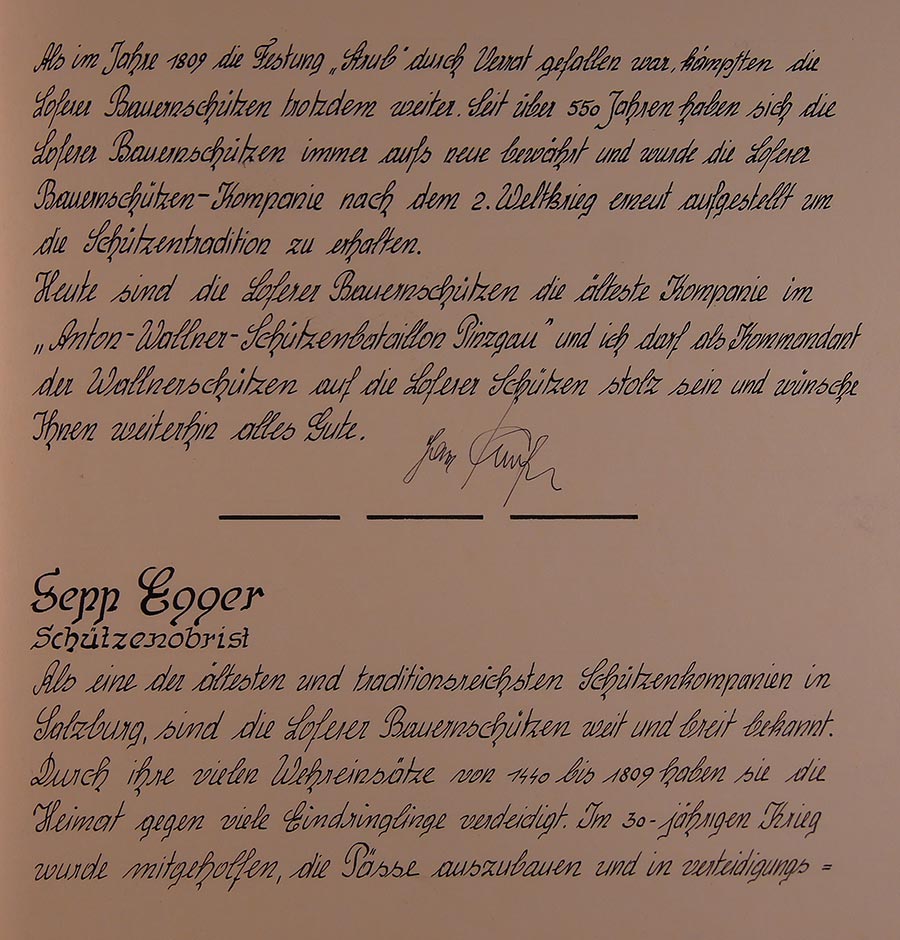 Als im Jahre 1809 die Festung „Strub" durch Verrat gefallen war, kämpften die
Loferer Bauernschützen trotzdem weiter. Seit über 550 Jahren haben sich die
Loferer Bauernschützen immer aufs neue bewährt und wurde die Loferer
Bauernschützen-Kompanie nach dem 2. Weltkrieg erneut aufgestellt um
die Schützentradition zu erhalten.
Heute sind die Loferer Bauernschützen die älteste Kompanie im
„Anton-Wallner-Schützenbataillon Pinzgau" und ich darf als Kommandant
der Wallnerschützen auf die Loferer Schützen stolz sein und wünsche
Ihnen weiterhin alles Gute.
Sepp Egger
Schützenobrist
Als eine der ältesten und traditionsreichsten Schützenkompanien in
Salzburg, sind die Loferer Bauernschützen weit und breit bekannt.
Durch ihre vielen Wehreinsätze von 1440 bis 1809 haben sie die
Heimat gegen viele Eindringlinge verdeidigt. Im 30-jährigen Krieg
wurde mitgeholfen, die Pässe auszubauen und in verteidigungs=